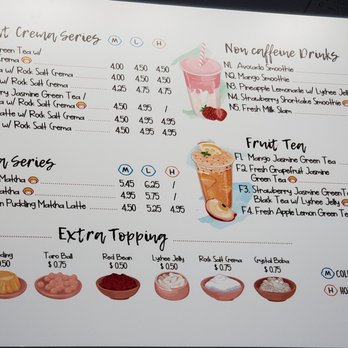 t Crema Series M L H
Green Tea w/
Crema 4.00 4.50 4.50
a w/ Rock Salt Crema 4.00 4.50 4.50
w/ Rock Salt Crema 4.25 4.75 4.75
ry Jasmine Green Tea /
a w/ Rock Salt Crema 4.50 4.95 /
Latte w/ Rock Salt Crema 4.50 4.95 4.95
w/ Rock Salt Crema 4.50 4.95 4.95
Non caffeine Drinks
N1. Avocado Smoothie
N2. Mango Smoothie
N3. Pineapple Lemonade w/ Lychee Jelly
N4. Strawberry Shortcake Smoothie
N5. Fresh Milk Slam
a Series M L H
Matcha 5.45 6.25 /
Matcha 4.95 5.75 /
n Pudding Matcha Latte 4.50 5.25 4.95
Fruit Tea
F1. Mango Jasmine Green Tea
F2. Fresh Grapefruit Jasmine
Green Tea
F3. Strawberry Jasmine Green Tea
Black Tea w/ Lychee Jelly
F4. Fresh Apple Lemon Green Te
Extra Topping
dding Taro Ball Red Bean Lychee Jelly Rock Salt Crema Crystal Boba
0.50 $ 0.75 $ 0.50 $ 0.50 $ 0.75 $ 0.75
M COL
H HO